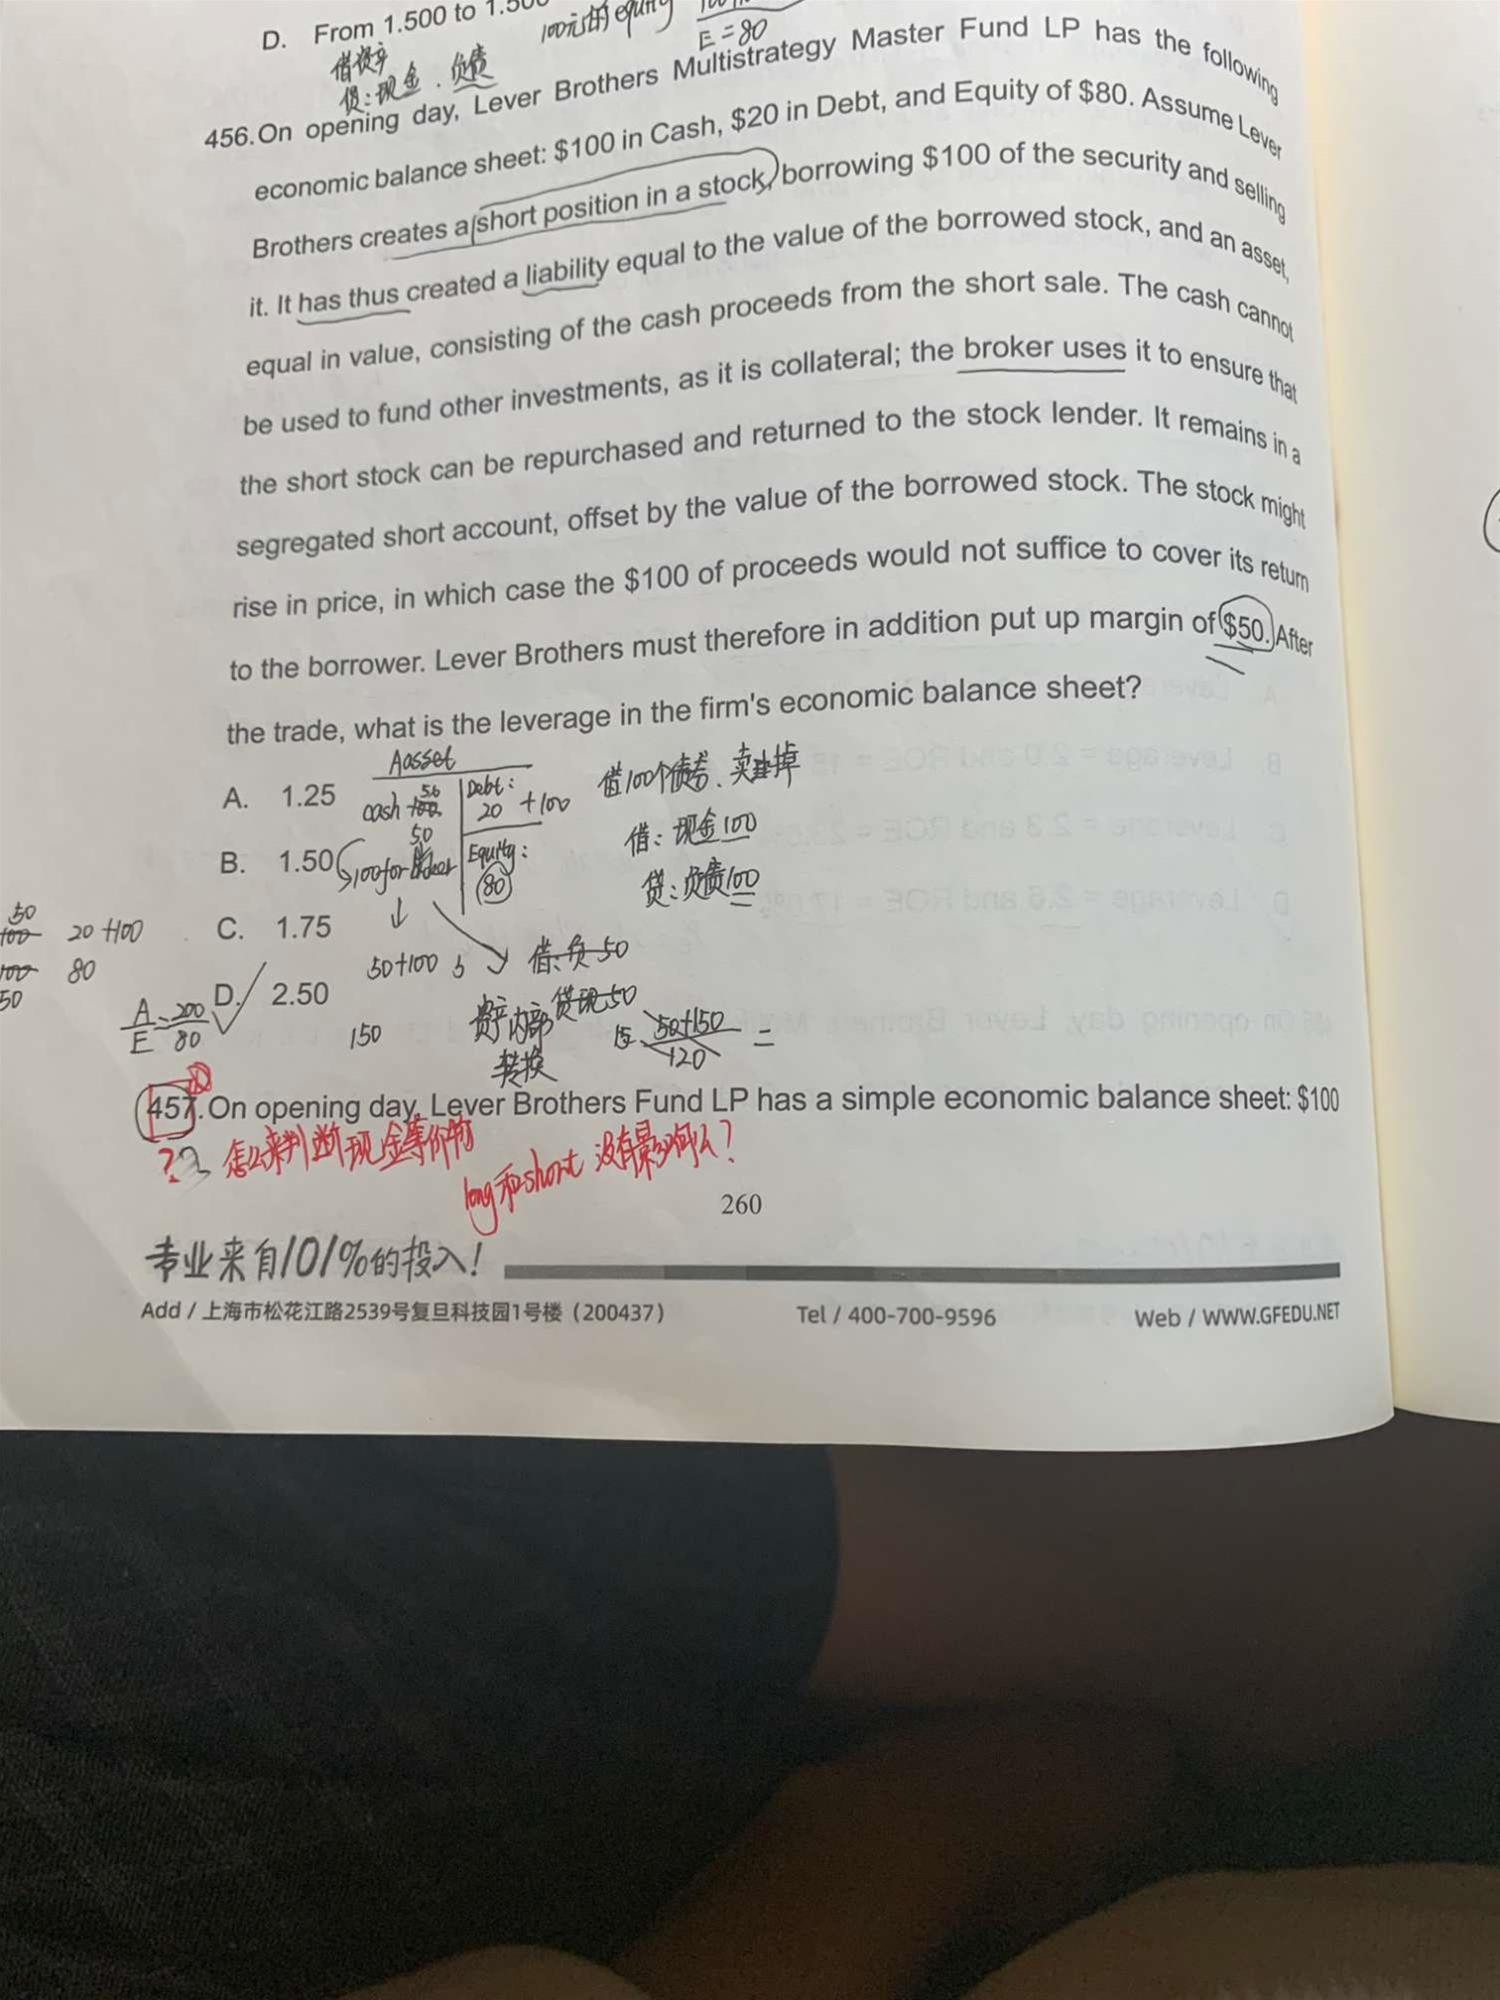 D. From 1.500 to 1.500
100元的equity
E=80
借:资产
贷:现金.负债
456.On opening day, Lever Brothers Multistrategy Master Fund LP has the following
economic balance sheet: $100 in Cash, $20 in Debt, and Equity of $80. Assume Lever
Brothers creates a short position in a stock, borrowing $100 of the security and selling
it. It has thus created a liability equal to the value of the borrowed stock, and an asset,
equal in value, consisting of the cash proceeds from the short sale. The cash cannot
be used to fund other investments, as it is collateral; the broker uses it to ensure that
the short stock can be repurchased and returned to the stock lender. It remains in a
segregated short account, offset by the value of the borrowed stock. The stock might
rise in price, in which case the $100 of proceeds would not suffice to cover its return
to the borrower. Lever Brothers must therefore in addition put up margin of $50. After
the trade, what is the leverage in the firm's economic balance sheet?
Aasset
A. 1.25
cash 100 50
Debt:
20 +100
借100个债券、卖掉
借:现金100
贷:负债100
B. 1.50
50
100 for
Equity:
80
C. 1.75
50+100
借:负 50
贷现50
D. 2.50
150
资产内部
转换
50+150
120
=
50
100 20+100
100 80
50
A/E=200/80
457.On opening day, Lever Brothers Fund LP has a simple economic balance sheet: $100
?? 怎么来判断现金等价物
long和short 没有影响么?
260
专业来自101%的投入!
Add / 上海市松花江路2539号复旦科技园1号楼（200437） Tel / 400-700-9596 Web / WWW.GFEDU.NET